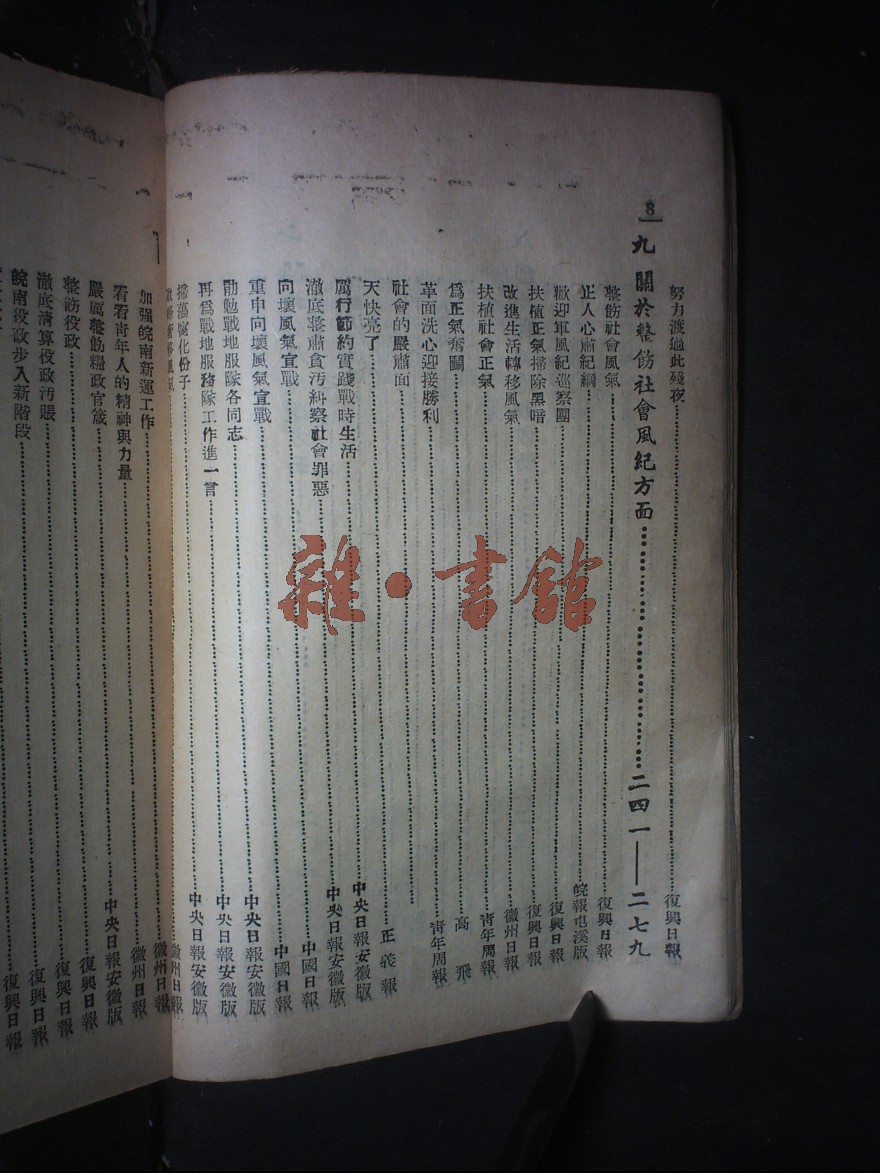 8
努力渡過此殘夜……復興日報
九 關於整飭社會風紀方面……二四一——二七九
整飭社會風氣……復興日報
正人心肅紀綱……皖報屯溪版
歡迎軍風紀巡察團……復興日報
扶植正氣掃除黑暗……復興日報
改進生活轉移風氣……徽州日報
扶植社會正氣……青年周報
爲正氣奮鬬……高飛
革面洗心迎接勝利……青年周報
社會的嚴肅面……
天快亮了……正義報
厲行節約實踐戰時生活……中央日報安徽版
澈底整肅貪污糾察社會罪惡……中央日報安徽版
向壞風氣宣戰……中國日報
重申向壞風氣宣戰……中國日報
勖勉戰地服隊各同志……中央日報安徽版
再爲戰地服務隊工作進一言……中央日報安徽版
掃蕩腐化份子……中央日報安徽版
風氣……徽州日報
加强皖南新運工作……徽州日報
看看靑年人的精神與力量……徽州日報
嚴厲整飭糧政官箴……中央日報安徽版
整飭役政……復興日報
澈底清算役政汚賬……復興日報
皖南役政步入新階段……復興日報
復興日報
雜·書館